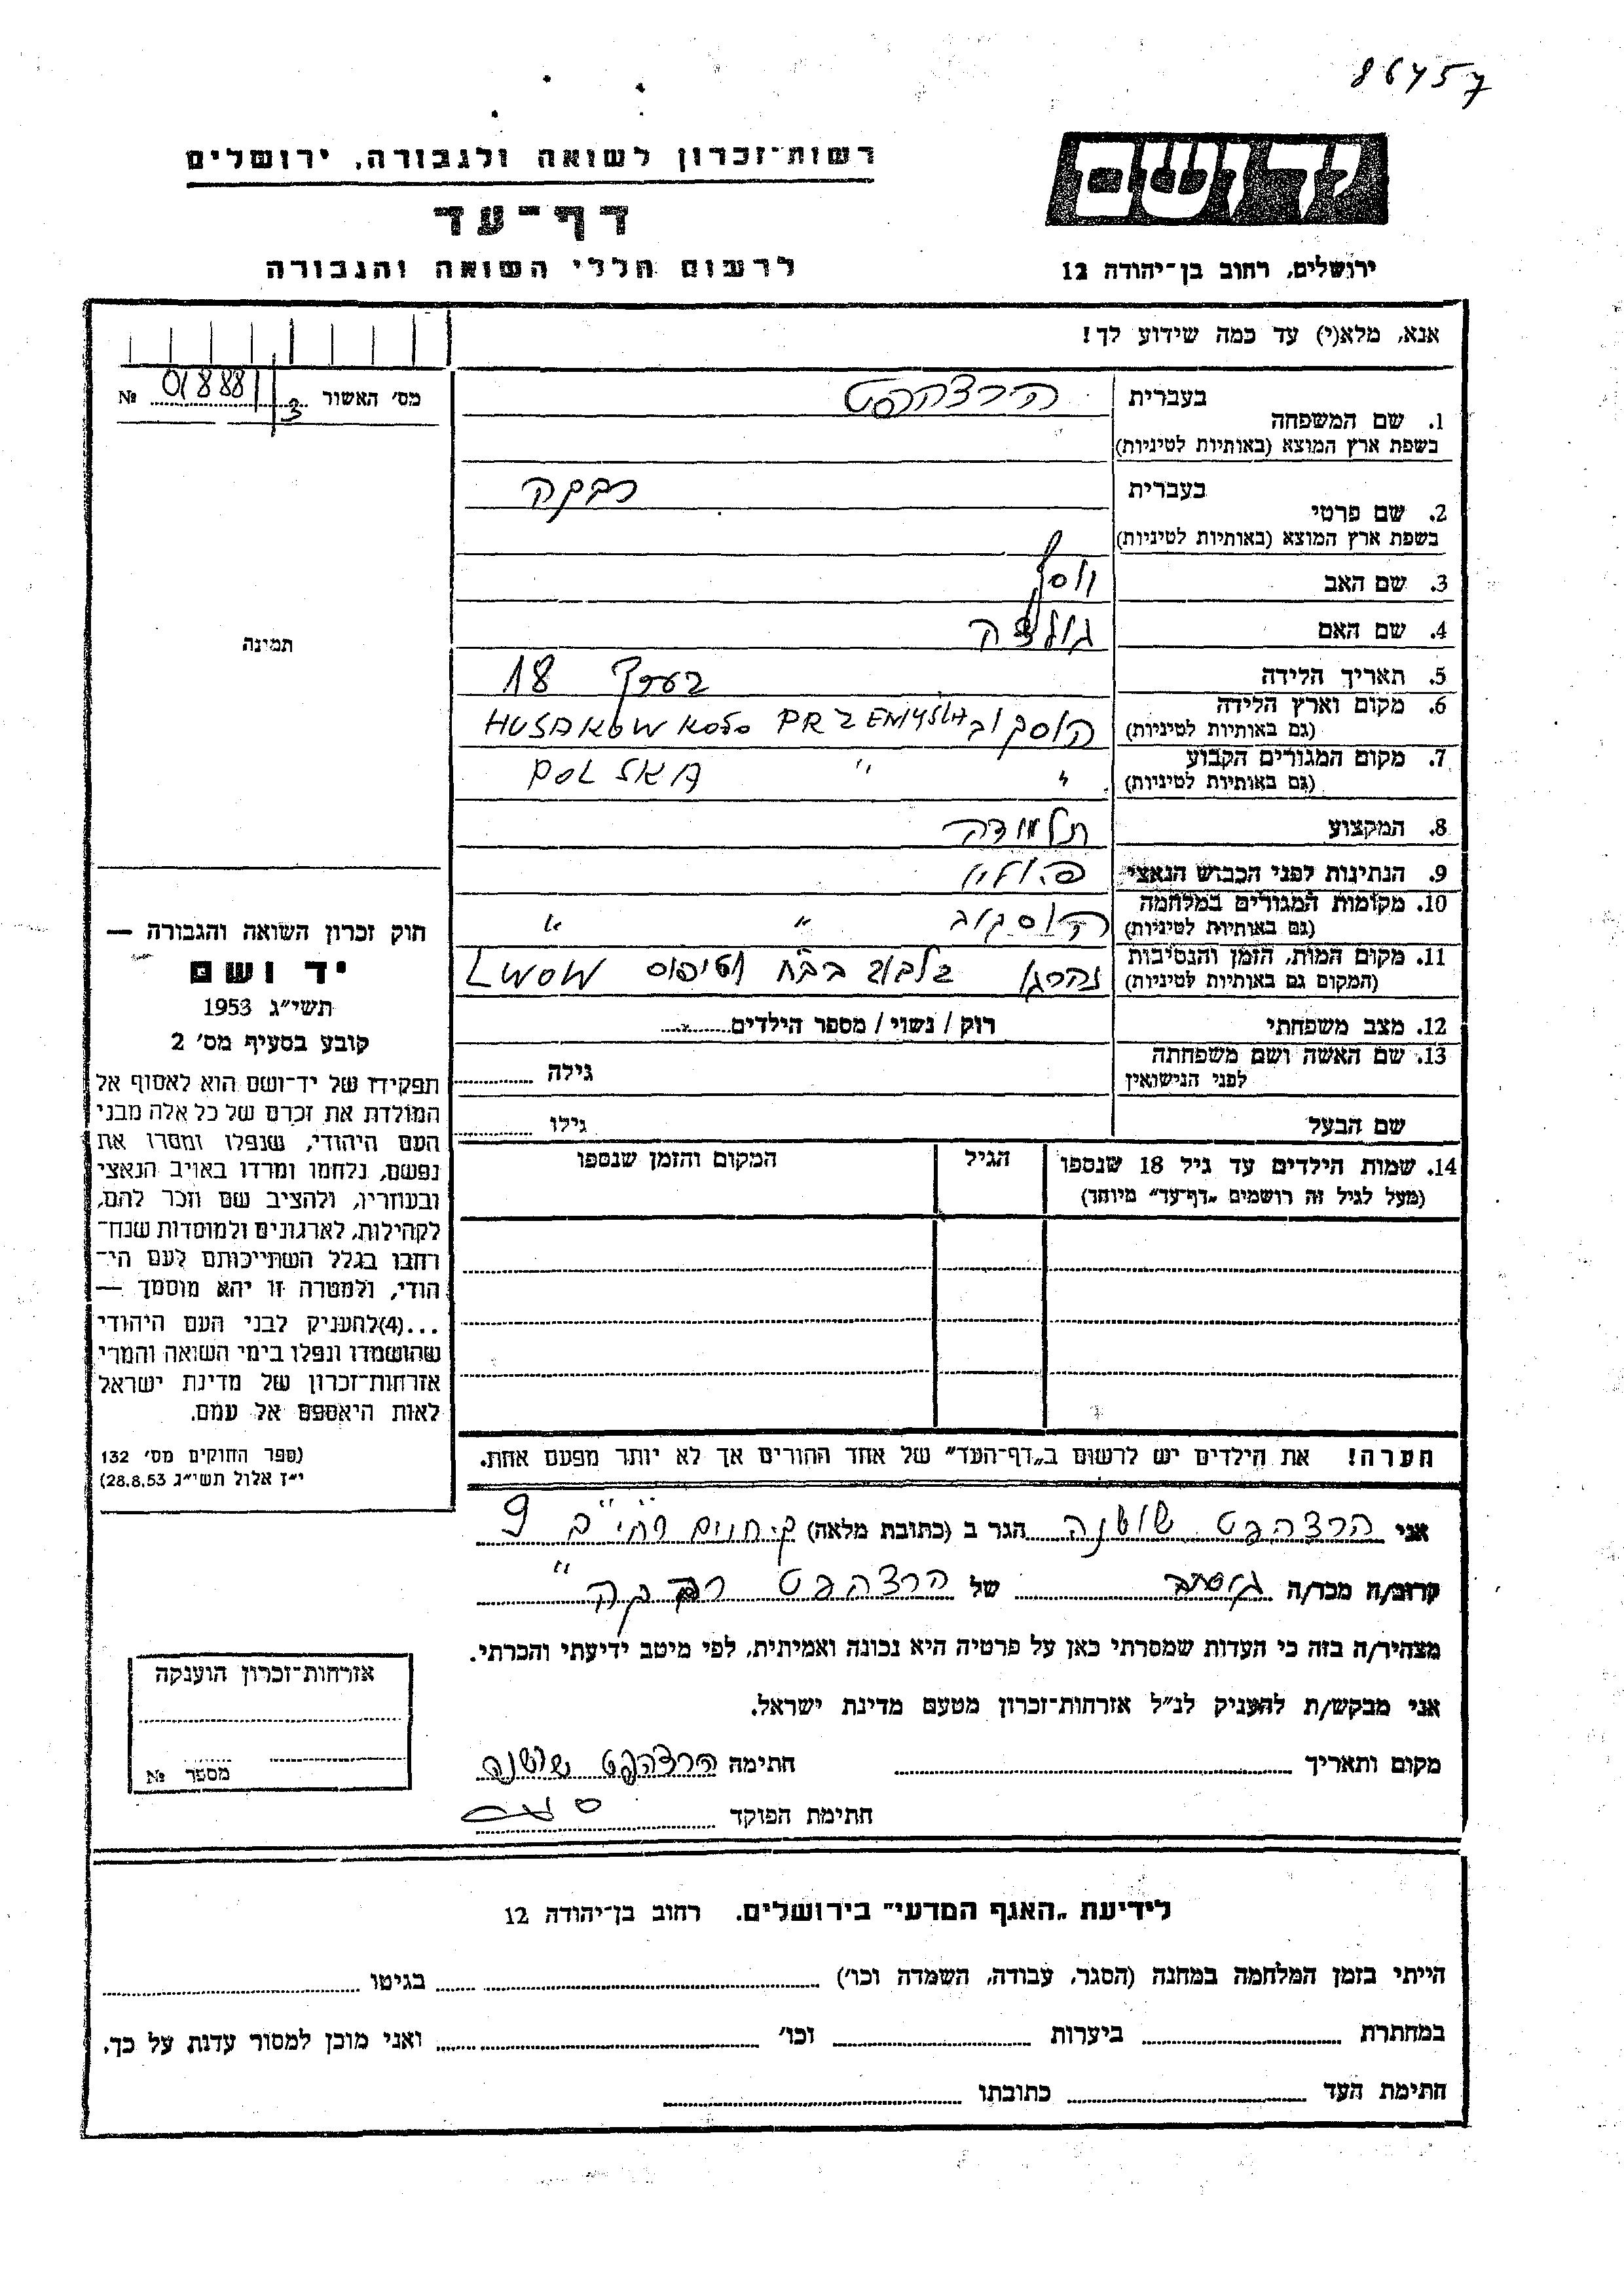 86457
רשות־זכרון לשואה ולגבורה, ירושלים
יד ושם
דף־עד
לרשום חללי השואה והגבורה
ירושלים, רחוב בן־יהודה 12
אנא, מלא(י) עד כמה שידוע לך!
מס׳ האשור 01888/3 №
1. שם המשפחה בעברית הרצהפט
בשפת ארץ המוצא (באותיות לטיניות)
2. שם פרטי בעברית רבקה
בשפת ארץ המוצא (באותיות לטיניות)
3. שם האב יוסף
4. שם האם גולדה
5. תאריך הלידה בערך 18
6. מקום וארץ הלידה (גם באותיות לטיניות) הוסקוב HUSAKOW KOŁO PRZEMYSLA
7. מקום המגורים הקבוע (גם באותיות לטיניות) " " POLSKA
8. המקצוע תלמידה
9. הנתינות לפני הכבוש הנאצי פולין
10. מקומות המגורים במלחמה (גם באותיות לטיניות) הוסקוב " "
11. מקום המות, הזמן והנסיבות (המקום גם באותיות לטיניות) בלבוב בב״ח טיפוס LWOW
12. מצב משפחתי רוק / נשוי / מספר הילדים
13. שם האשה ושם משפחתה לפני הנישואין גילה
שם הבעל גילו
14. שמות הילדים עד גיל 18 שנספו הגיל המקום והזמן שנספו
(מעל לגיל זה רושמים „דף־עד״ מיוחד)
הערה! את הילדים יש לרשום ב„דף־העד״ של אחד ההורים אך לא יותר מפעם אחת.
תמינה
חוק זכרון השואה והגבורה —
יד ושם
תשי״ג 1953
קובע בסעיף מס׳ 2
תפקידו של יד־ושם הוא לאסוף אל
המולדת את זכרם של כל אלה מבני
העם היהודי, שנפלו ומסרו את
נפשם, נלחמו ומרדו באויב הנאצי
ובעוזריו, ולהציב שם וזכר להם,
לקהילות, לארגונים ולמוסדות שנח־
רבו בגלל השתייכותם לעם הי־
הודי, ולמטרה זו יהא מוסמך —
...(4)להעניק לבני העם היהודי
שהושמדו ונפלו בימי השואה והמרי
אזרחות־זכרון של מדינת ישראל
לאות היאספם אל עמם.
(ספר החוקים מס׳ 132
י״ז אלול תשי״ג 28.8.53)
אני הרצהפט שושנה הגר ב (כתובת מלאה) ק. חיים רח׳ 9
קרוב/ה מכר/ה של הרצהפט רבקה
מצהיר/ה בזה כי העדות שמסרתי כאן על פרטיה היא נכונה ואמיתית, לפי מיטב ידיעתי והכרתי.
אני מבקש/ת להעניק לנ״ל אזרחות־זכרון מטעם מדינת ישראל.
מקום ותאריך חתימה הרצהפט שושנה
חתימת הפוקד
אזרחות־זכרון הוענקה
מספר №
לידיעת „האגף המדעי״ בירושלים. רחוב בן־יהודה 12
הייתי בזמן המלחמה במחנה (הסגר, עבודה, השמדה וכו׳) בגיטו
במחתרת ביערות וכו׳ ואני מוכן למסור עדות על כך.
חתימת העד כתובתו